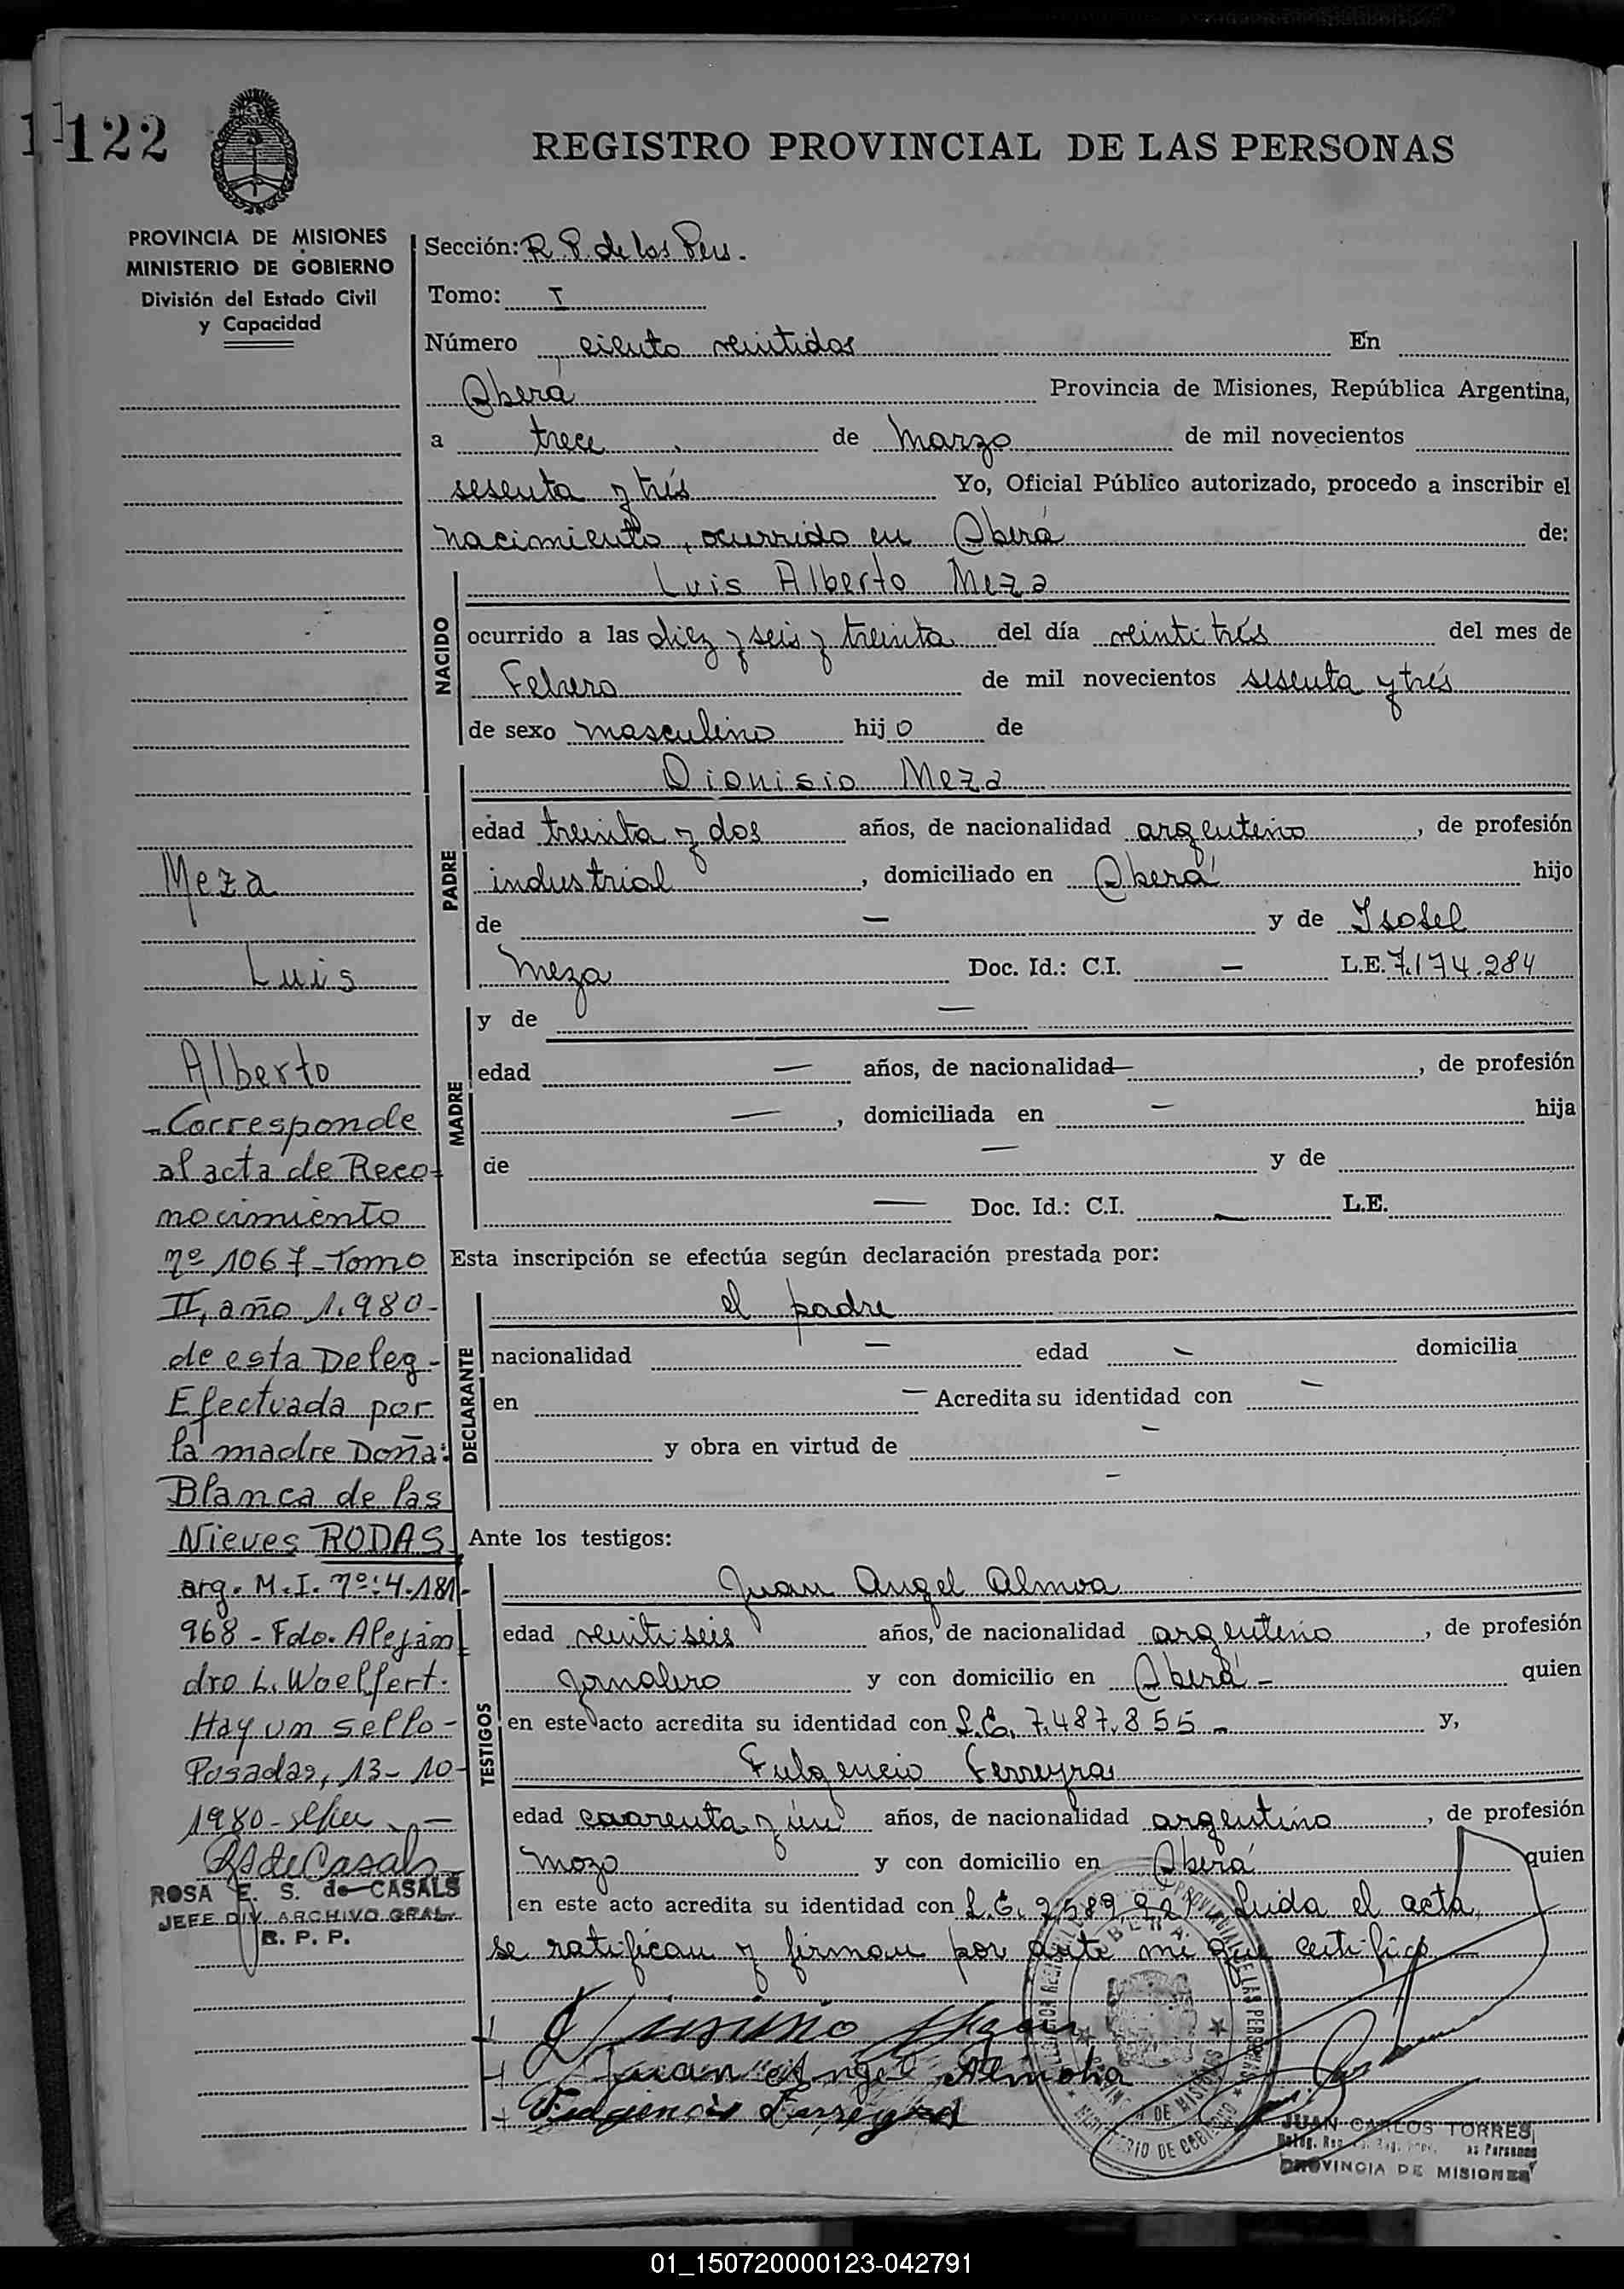 122
REGISTRO PROVINCIAL DE LAS PERSONAS
PROVINCIA DE MISIONES
MINISTERIO DE GOBIERNO
División del Estado Civil
y Capacidad
Sección: R. P. de las Pers.
Tomo: I
Número ciento veintidos En
Oberá Provincia de Misiones, República Argentina,
a trece de Marzo de mil novecientos
sesenta y trés Yo, Oficial Público autorizado, procedo a inscribir el
nacimiento, ocurrido en Oberá de:
NACIDO
Luis Alberto Meza
ocurrido a las diez y seis y treinta del día veintitrés del mes de
Febrero de mil novecientos sesenta y trés
de sexo masculino hijo de
PADRE
Dionisio Meza
edad treinta y dos años, de nacionalidad argentino, de profesión
industrial, domiciliado en Oberá hijo
de — y de Isabel
Meza Doc. Id.: C.I. — L.E. 7.174.284
MADRE
y de —
edad — años, de nacionalidad —, de profesión
—, domiciliada en — hija
de — y de
— Doc. Id.: C.I. — L.E.
Esta inscripción se efectúa según declaración prestada por:
DECLARANTE
el padre
nacionalidad — edad — domicilia
en — Acredita su identidad con —
y obra en virtud de —
—
Ante los testigos:
TESTIGOS
Juan Angel Almoa
edad veintiseis años, de nacionalidad argentino, de profesión
jornalero y con domicilio en Oberá - quien
en este acto acredita su identidad con L.E. 7.487.855 - y,
Fulgencio Ferreyra
edad cuarenta y un años, de nacionalidad argentino, de profesión
mozo y con domicilio en Oberá quien
en este acto acredita su identidad con L.E. Leida el acta,
se ratifican y firman por ante mi que certifico
Dionisio Meza
Juan Angel Almoha
Fulgencio Ferreyra
Meza
Luis
Alberto
- Corresponde
al acta de Reco-
nocimiento
nº 1067 - Tomo
II, año 1.980 -
de esta Deleg -
Efectuada por
la madre Doña:
Blanca de las
Nieves RODAS
arg. M.I. nº: 4.181-
968 - Fdo. Alejan-
dro L. Woelfert.
Hay un sello -
Posadas, 13-10-
1980-
RS de Casals
ROSA E. S. de CASALS
JEFE DIV. ARCHIVO GRAL.
R. P. P.
OBERA
PROVINCIA DE MISIONES
MINISTERIO DE GOBIERNO
JUAN CARLOS TORRES
PROVINCIA DE MISIONES
01_150720000123-042791